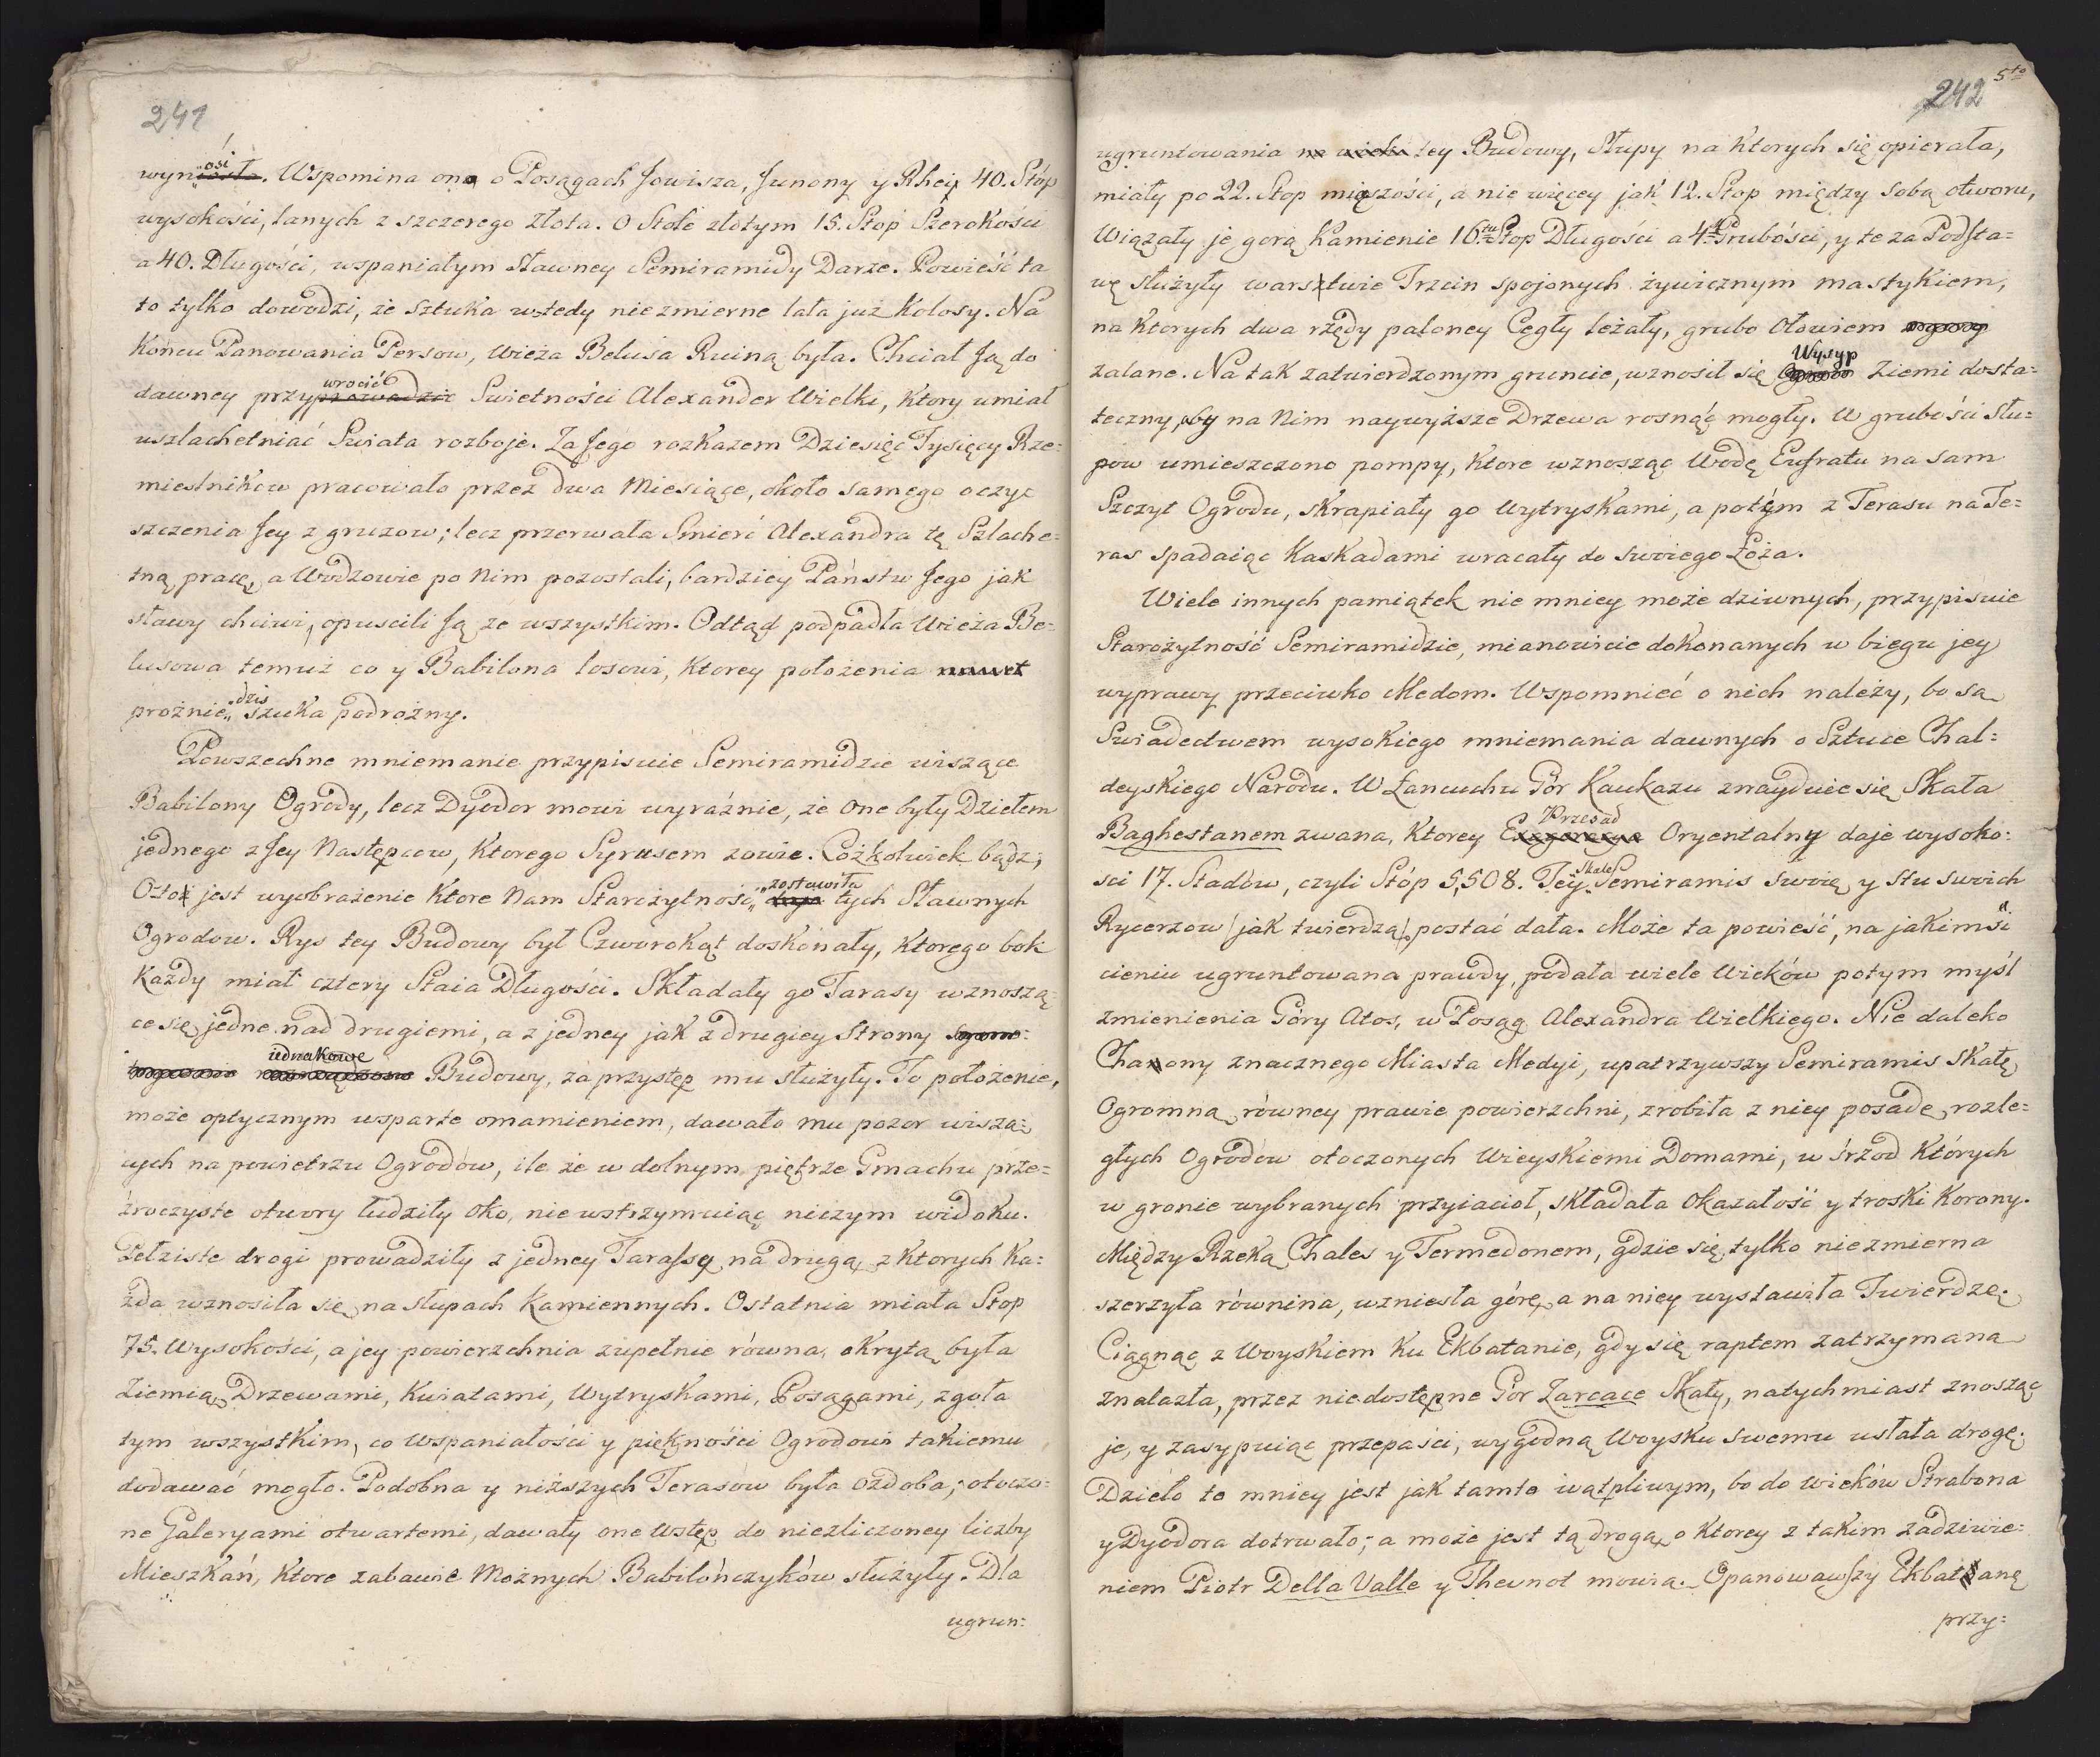 241
wyniosła. osi Wspomina ona o Posągach Jowisza, Junony y Rhei, 40. Stóp
wysokości, lanych z szczerego Złota. O Stole złotym 15. Stop Szerokości
a 40. Długości, wspaniałym sławney Semiramidy Darze. Powieść ta
to tylko dowodzi, że sztuka w-tedy niezmierne lała już Kolosy. Na
Końcu Panowania Persow, Wieża Belusa Ruiną była. Chciał Ją do
dawney przyprowadzic wrocić Swietności Alexander Wielki, Ktory umiał
uszlachetniać Swiata rozboje. Za Jego rozkazem Dziesięć Tysięcy Rze=
miesłnikow pracowało przez dwa Miesiące, około samego oczy=
szczenia Jey z gruzow; lecz przerwała Smierć Alexandra tę Szlache=
tną pracę, a Wodzowie po Nim pozostali, bardziey Państw Jego jak
sławy chciwi, opuscili Ją ze wszystkim. Odtąd podpadła Wieża Be=
lusowa temuż co y Babilona losowi, Ktorey położenia nawet
prożnie dzis szuka podrożny.
Powszechne mniemanie przypisuie Semiramidzie wiszące
Babilony Ogrody, lecz Dyodor mowi wyraźnie, że one były Dziełem
jednego z Jey Następcow, Ktorego Syrusem zowie. Cożkolwiek bądz;
Oto jest wyobrażenie Ktore Nam Starożytność zostawiła daje tych Sławnych
Ogrodow. Rys tey Budowy był Czworokąt doskonały, Ktorego bok
Każdy miał cztery Staia Długości. Składały go Tarasy wznoszą=
ce się jedne nad drugiemi, a z jedney jak z drugiey Strony
jednakowe Budowy, za przystęp mu służyły. To położenie,
może optycznym wsparte omamieniem, dawało mu pozor wiszą=
cych na powietrzu Ogrodów, ile że w dolnym piętrze Gmachu prze=
źroczyste otwory łudziły oko, nie wstrzymuiąc niczym widoku.
Pełziste drogi prowadziły z jedney Tarassy na drugą, z Ktorych Ka=
żda wznosiła się na słupach Kamiennych. Ostatnia miała Stop
75. Wysokości, a jey powierzchnia zupełnie równa, okrytą była
Ziemią, Drzewami, Kwiatami, Wytryskami, Posągami, zgoła
tym wszystkim, co wspaniałości y piękności Ogrodowi takiemu
dodawać mogło. Podobna y niższych Terasow była ozdoba; otoczo=
ne Galeryami otwartemi, dawały one Wstęp do niezliczoney liczby
Mieszkań, Ktore zabawie Możnych Babilończyków służyły. Dla
ugrun:
5to
242
ugruntowania na wieki tey Budowy, Słupy na Ktorych się opierała,
miały po 22. Stop miąszości, a nie więcey jak 12. Stop między sobą otworu,
Wiązały je gorą Kamienie 16tu Stop Długości a 4. Grubości, y te za Podsta=
wę służyły warstwie Trzcin spojonych żywicznym mastykiem,
na Ktorych dwa rzędy paloney Cegły leżały, grubo Ołowiem
zalane. Na tak zatwierdzonym gruncie, wznosił się Wysyp Ziemi dosta=
teczny, aby na Nim naywyższe Drzewa rosnąć mogły. W grubości Słu=
pow umieszczono pompy, Ktore wznosząc Wodę Eufratu na sam
Szczyt Ogrodu, skrapiały go Wytryskami, a potym z Terasu na Te=
ras spadaiąc Kaskadami wracały do swoiego Łoża.
Wiele innych pamiątek nie mniey może dziwnych, przypisuie
Starożytność Semiramidzie, mianowicie dokonanych w biegu jey
wyprawy przeciwko Medom. Wspomnieć o nich należy, bo są
Swiadectwem wysokiego mniemania dawnych o Sztuce Chal=
deyskiego Narodu. W Łancuchu Gór Kaukazu znayduie się Skała
Baghestanem zwana, Ktorey Exageracya Przesad Oryentalny daje wysoko=
sci 17. Stadów, czyli Stóp 5,508. Tey Skale Semiramis swoią y stu swoich
Rycerzow (jak twierdzą) postać dała. Może ta powieść, na jakimsi
cieniu ugruntowana prawdy, podała wiele Wieków potym myśl
zmienienia Góry Atos, w Posąg Alexandra Wielkiego. Nie daleko
Chaony znacznego Miasta Medyi, upatrzywszy Semiramis Skałę
Ogromną, równey prawie powierzchni, zrobiła z niey posadę rozle=
głych Ogrodów otoczonych Wieyskiemi Domami, w śrzod Których
w gronie wybranych przyiaciol, składała okazałość y troski Korony.
Między Rzeką Chales y Termedonem, gdzie się tylko niezmierna
szerzyła równina, wzniesła górę, a na niey wystawiła Twierdzę.
Ciągnąc z Woyskiem Ku Ekbatanie, gdy się raptem zatrzymana
znalazła, przez niedostępne Gór Zarcace Skały, natychmiast znosząc
je, y zasypuiąc przepaści, wygodną Woysku swemu usłała drogę.
Dzieło to mniey jest jak tamto wątpliwym, bo do wieków Strabona
y Dyodora dotrwało; a może jest tą drogą, o Ktorey z takim zadziwie=
niem Piotr Della Valle y Thevnot mowią. Opanowawszy Ekbatanę
przy=